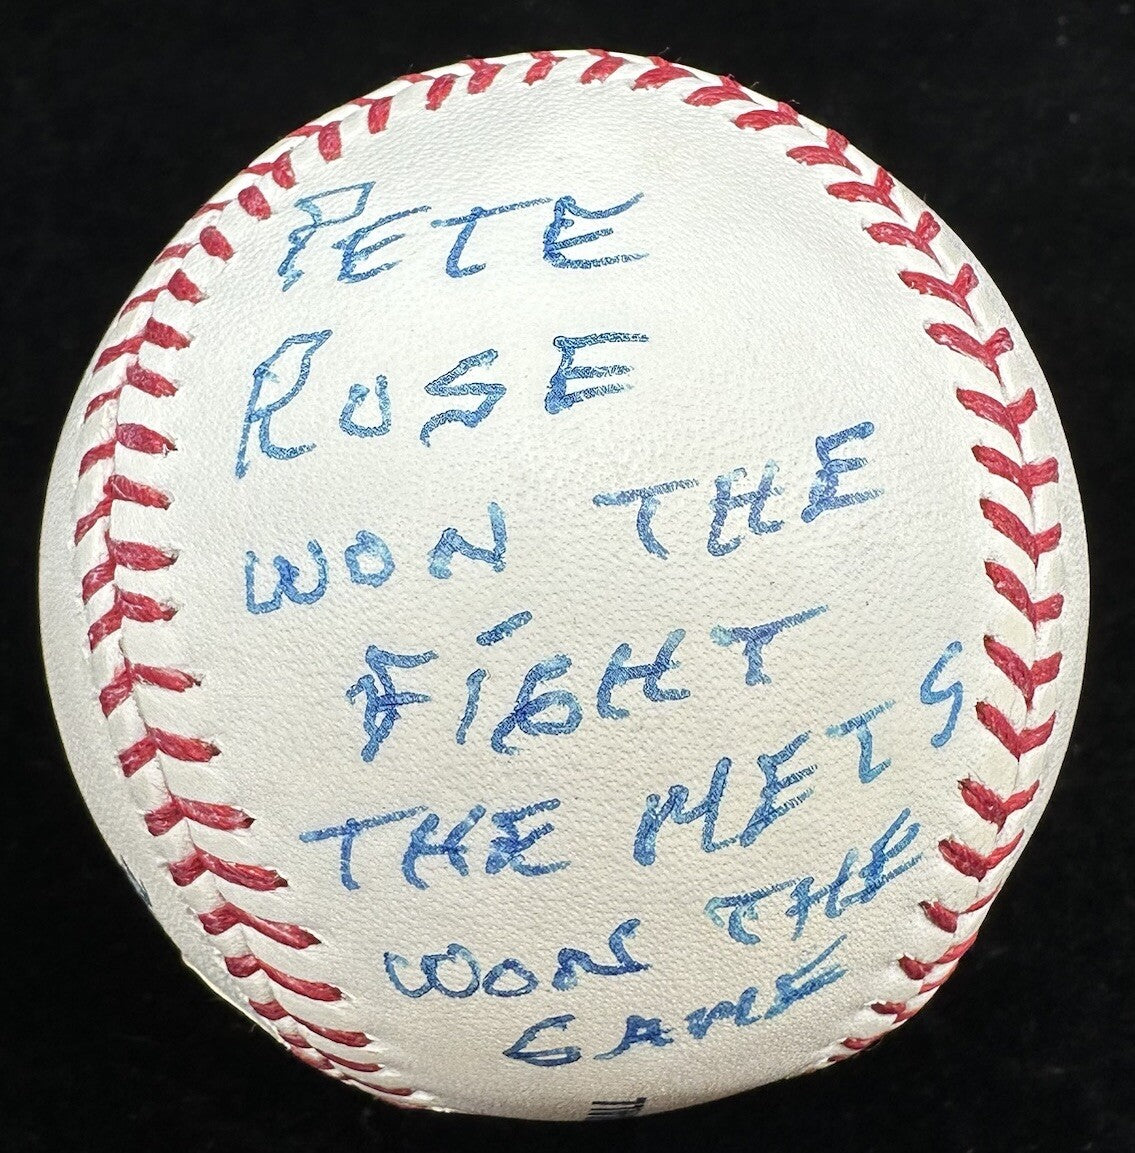 PETE
ROSE
WON THE
FIGHT
THE METS
WON THE
GAME